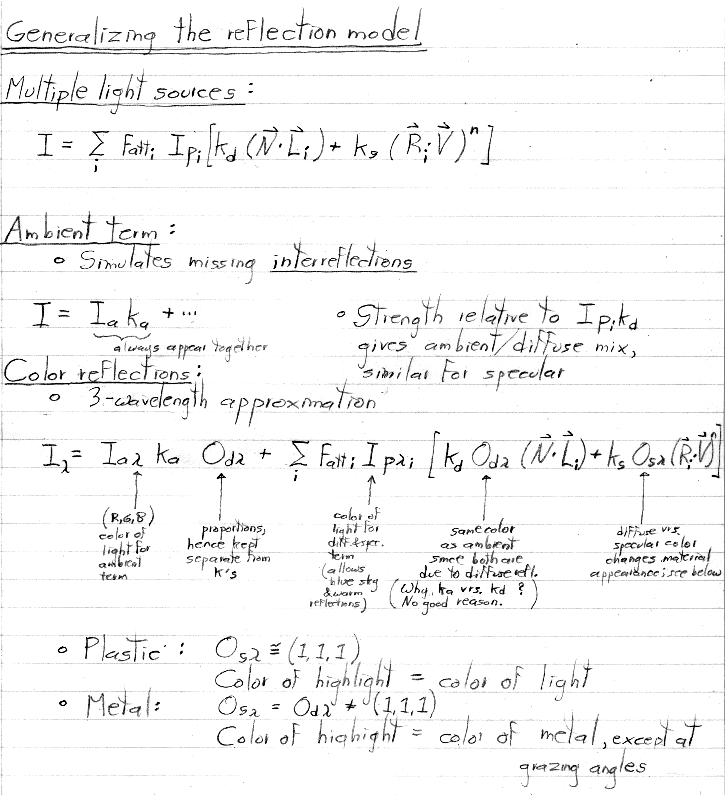 Generalizing the reflection model
Multiple light sources:
I = Σ_i Fatt_i Ip_i [k_d (N⃗·L⃗_i) + k_s (R⃗_i·V⃗)^n]
Ambient term:
∘ Simulates missing interreflections
I = I_a k_a + ...
always appear together
∘ Strength relative to I_pi k_d
gives ambient/diffuse mix,
similar for specular
Color reflections:
∘ 3-wavelength approxmation
I_λ = I_aλ k_a O_dλ + Σ_i Fatt_i I_pλi [k_d O_dλ (N⃗·L⃗_i) + k_s O_sλ (R⃗_i·V⃗)^n]
(R,G,B)
color of
light for
ambient
term
proportions,
hence kept
separate from
k's
color of
light for
diff.&spec.
term
(allows
blue sky
& warm
reflections)
same color
as ambient
since both are
due to diffuse refl.
(Why ka vrs. kd ?
No good reason.)
diffuse vrs.
specular color
changes material
appearance; see below
∘ Plastic: O_sλ ≅ (1,1,1)
Color of highlight = color of light
∘ Metal: O_sλ = O_dλ ≠ (1,1,1)
Color of highight = color of metal, except at
grazing angles